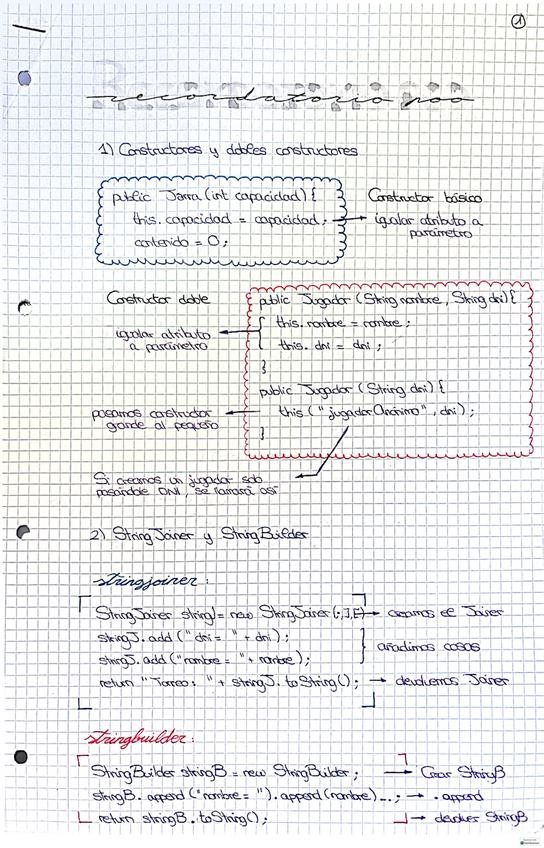 1
recordatorio poo
1) Constructores y dobles constructores
public Jarra (int capacidad) {
this. capacidad = capacidad;
contenido = 0;
Constructor básico
igualar atributo a
parámetro
Constructor doble
igualar atributo
a parámetro
public Jugador (String nombre, String dni) {
this. nombre = nombre;
this. dni = dni;
}
public Jugador (String dni) {
this ("jugador Anónimo", dni);
}
pasamos constructor
grande al pequeño
Si creamos un jugador solo
pasándole DNI, se llamará así
2) StringJoiner y StringBuilder
stringjoiner:
StringJoiner stringJ = new StringJoiner (
→ creamos el Joiner
stringJ. add ("dni = " + dni);
stringJ. add ("nombre = " + nombre);
} añadimos cosas
return "Torneo: " + stringJ. toString(); → devolvemos Joiner
stringbuilder:
StringBuilder stringB = new StringBuilder; → Crear StringB
stringB. append ("nombre = "). append (nombre)...; → . append
return stringB. toString(); → devolver StringB